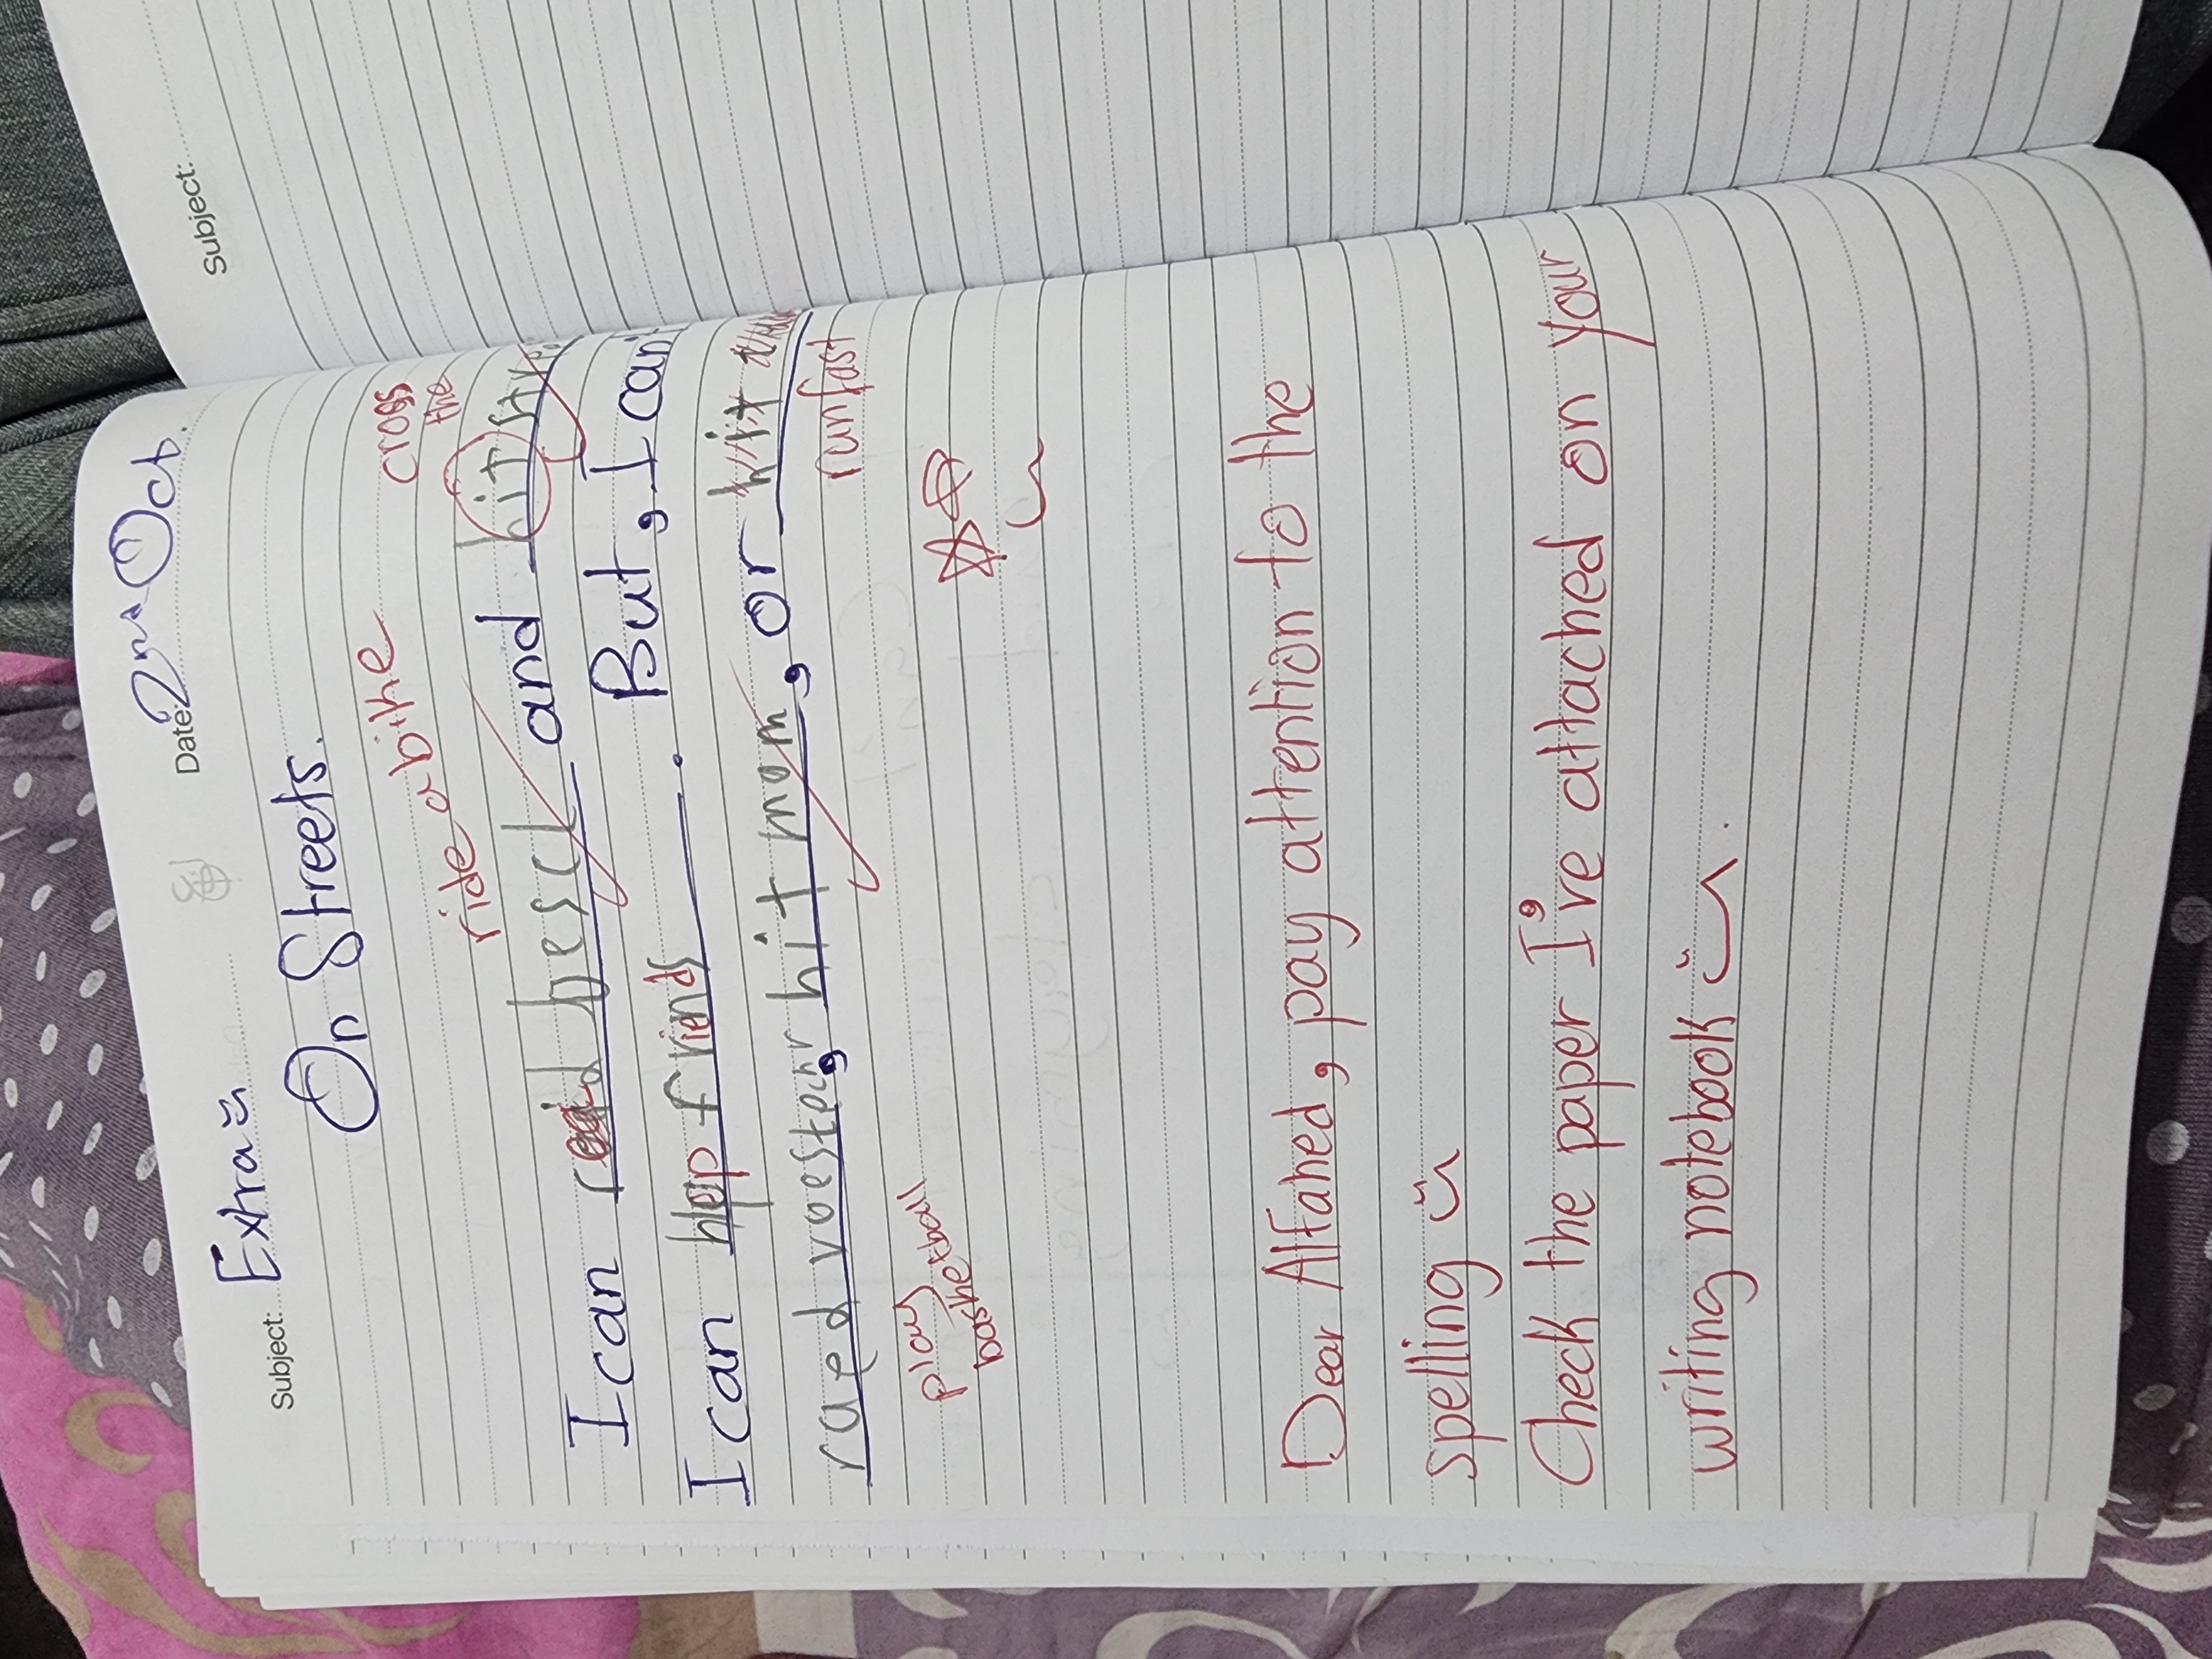 Subject: Extra Date: 2nd Oct.
On Streets.
ride a bike cross the
I can raid besck and hit
I can help friends. But, I can't
raed voestear, hit mom, or hit
play basketball run fast
Dear Alfahed, pay attention to the
spelling
Check the paper I've attached on your
writing notebook
Subject: